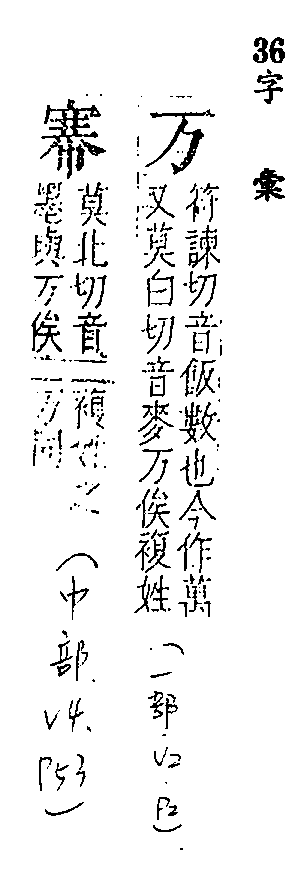 36 字彙
万
符諫切音飯數也今作萬
又莫白切音麥万俟複姓
(一部.V2.P2).
莫北切音
墨與万俟
複姓之
万同
(巾部.V4.P53)